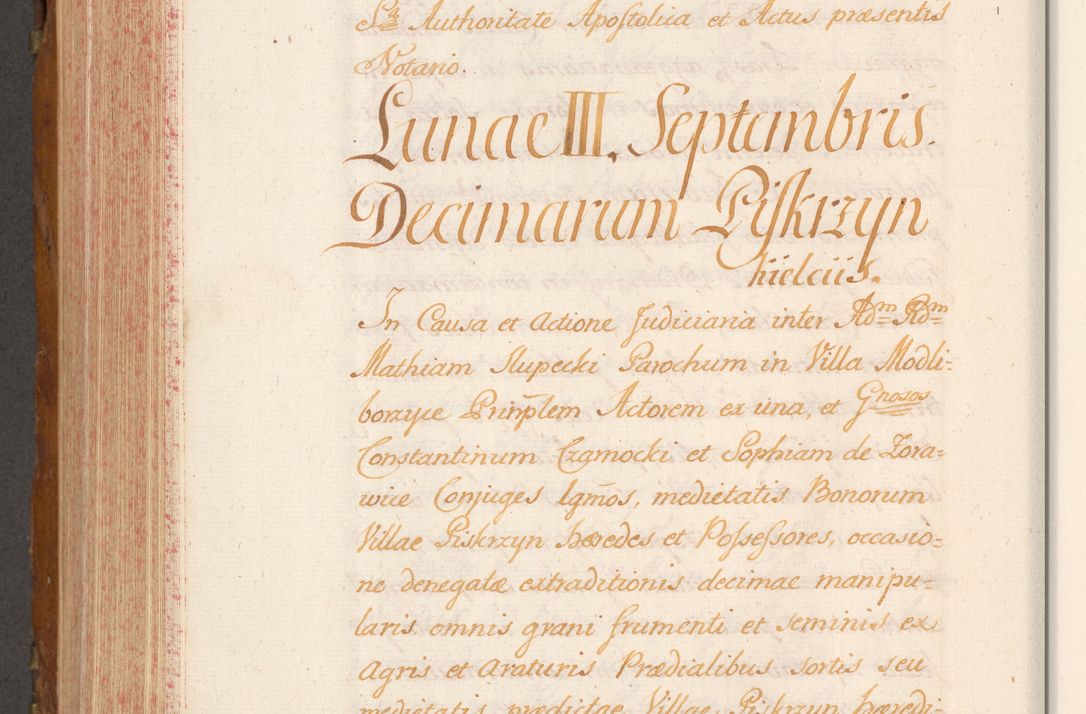 Sa Authoritate Apostolica et Actus præsentis
Notario.
Lunae III. Septembris.
Decimarum Piskrzyn
kielciis.
In Causa et Actione Judiciaria inter Adm Rdm
Mathiam Słupecki Parochum in Villa Modli=
borzyce Prinplem Actorem ex una, et Gnosos
Constantinum Czarnocki et Sophiam de Zora=
wice Conjuges lgmos, medietatis Bonorum
Villae Piskrzyn hæredes et Possessores, occasio=
ne denegatæ extraditionis decimae manipu=
laris omnis grani frumenti et seminis ex
Agris et Araturis Prædialibus sortis seu
medietatis prædictae Villae Piskrzyn hæredi=